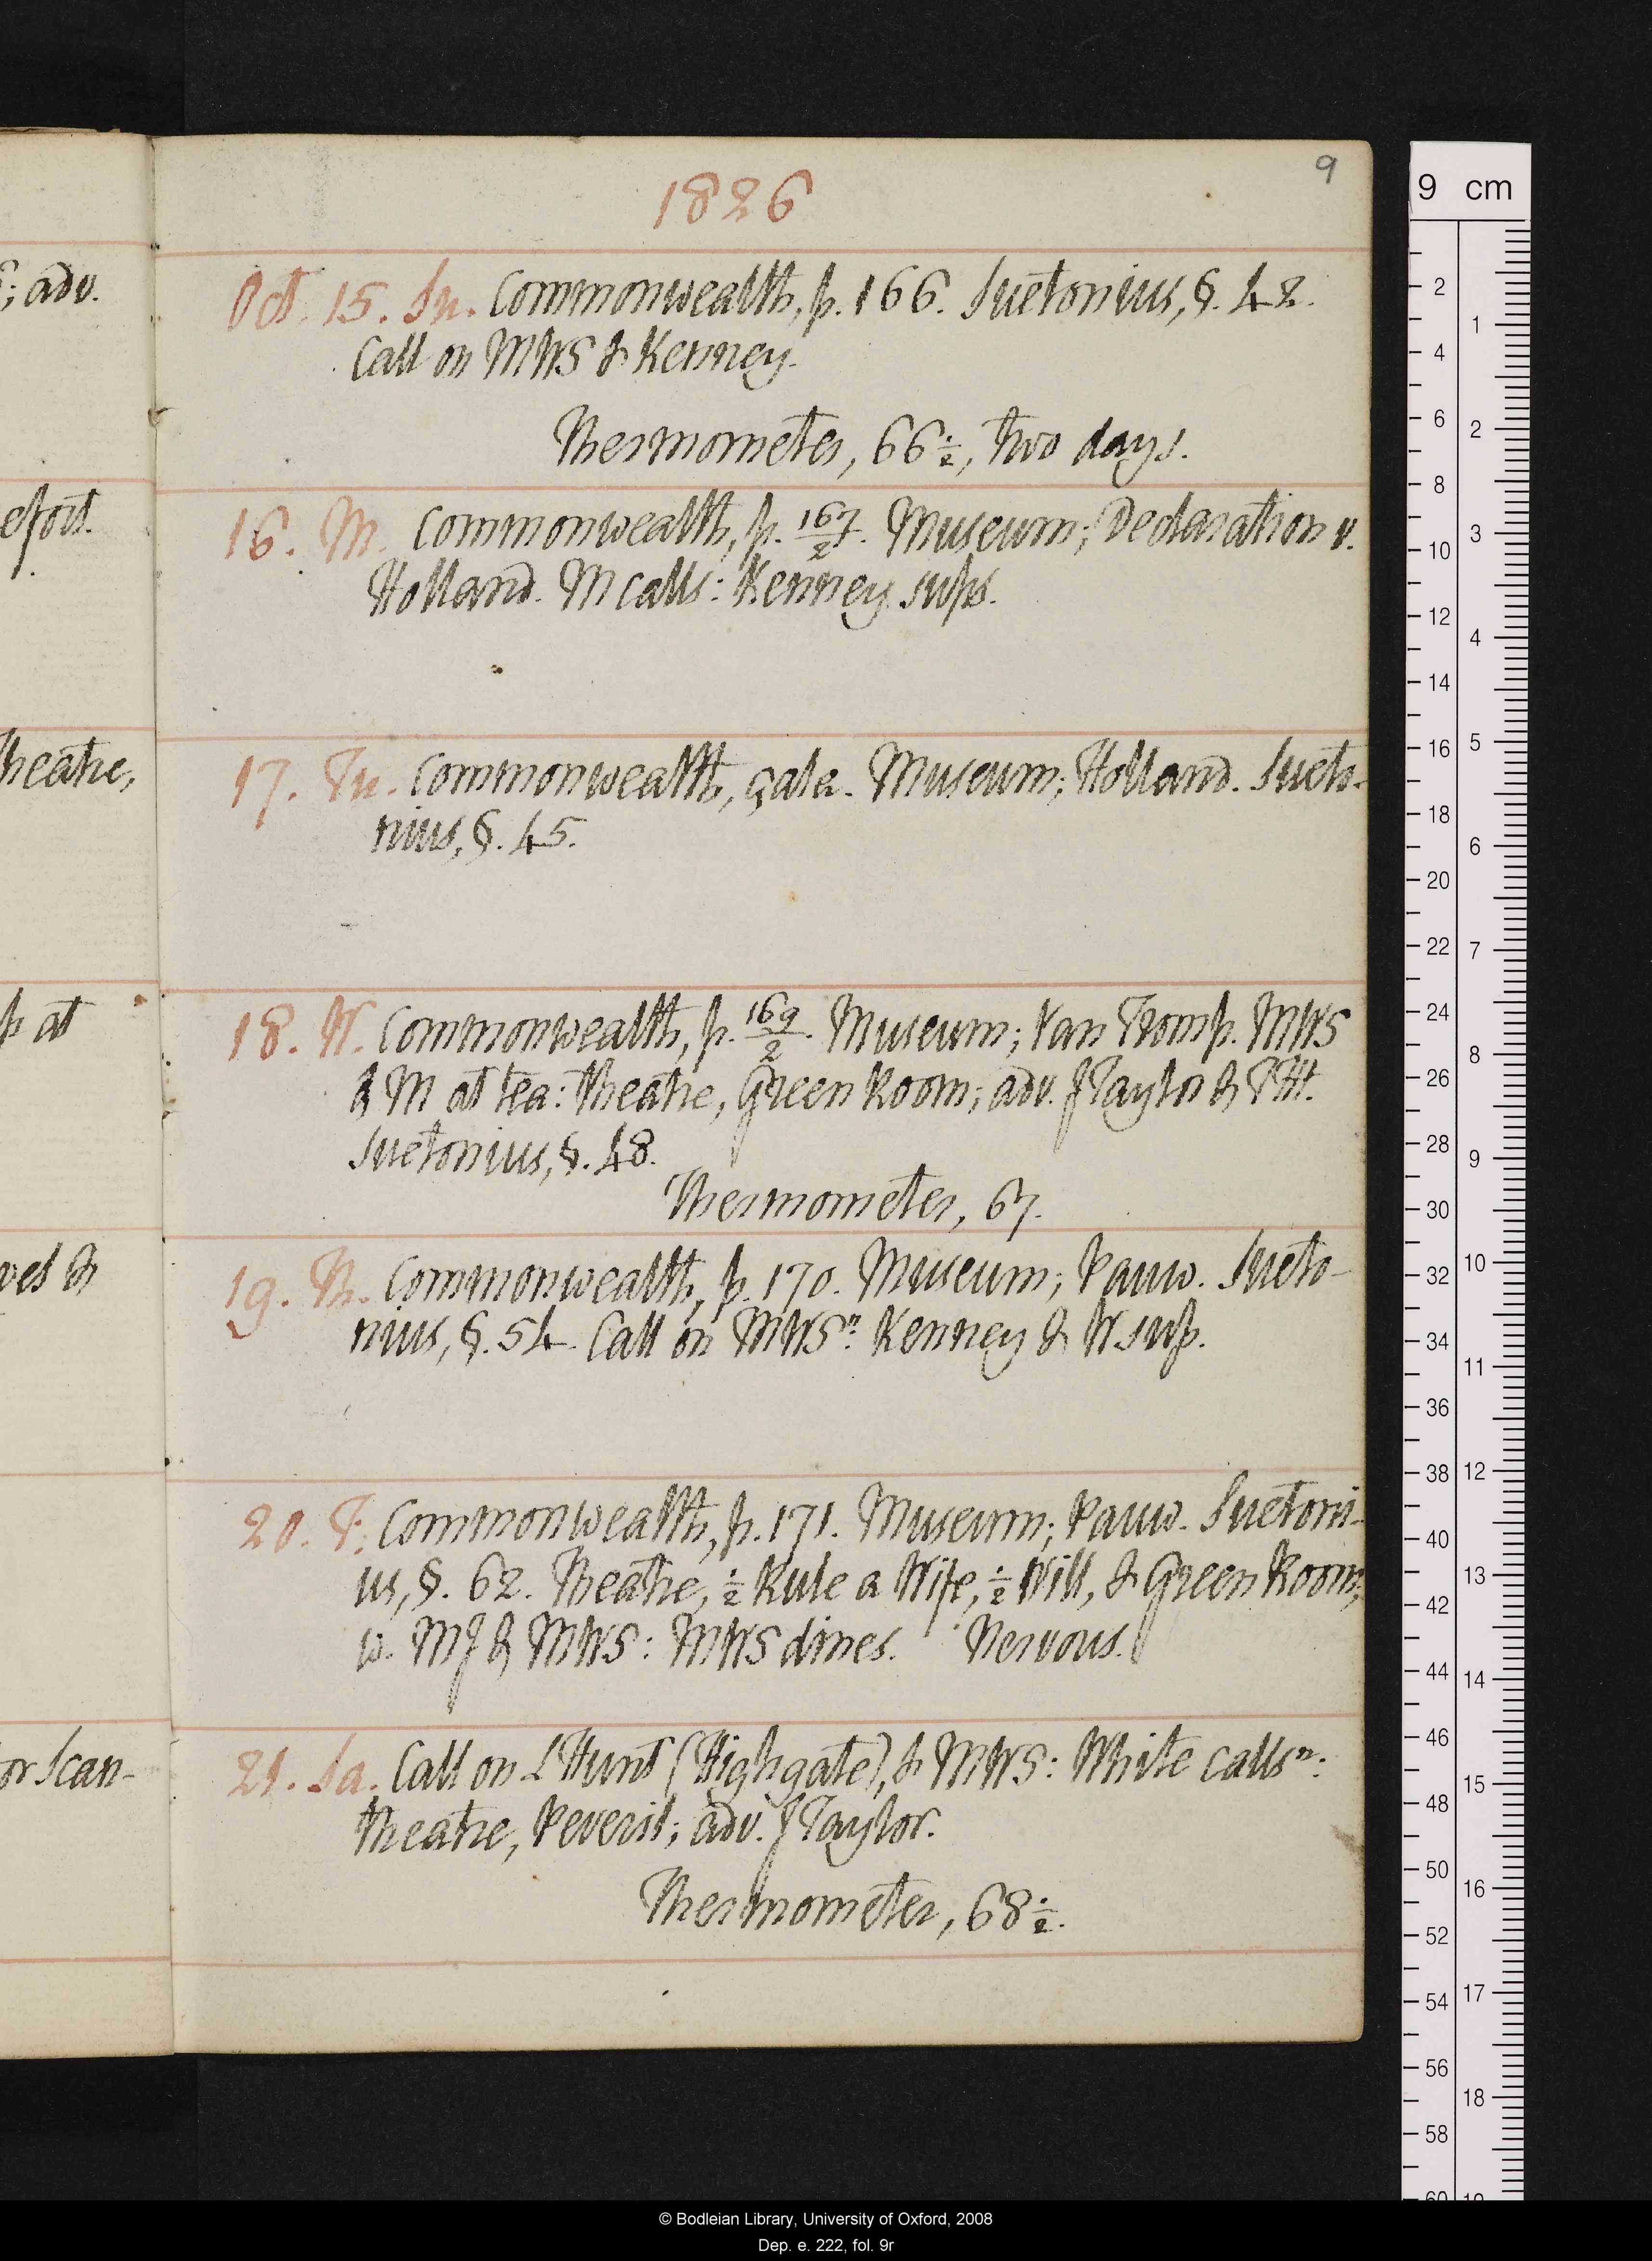 1826
9
; adv.
Oct. 15. Su. Commonwealth, p. 166. Suetonius, §. 42.
Call on MWS & Kenney.
Thermometer, 66 1/2, two days.
efort.
16. M. Commonwealth, p. 167/2. Museum; Declaration v.
Holland. M calls: Kenney sups.
heatre,
17. Tu. Commonwealth, çala. Museum; Holland. Sueto-
nius, §. 45.
p at
18. W. Commonwealth, p. 169/2. Museum; Van Tromp. MWS
& M at tea: theatre, Green Room; adv. J Taylor & THt.
Suetonius, §. 48.
Thermometer, 67.
ves &
19. Th. Commonwealth, p. 170. Museum; Pauw. Sueto-
nius, §. 54. Call on MWSn: Kenney & W sup.
20. F. Commonwealth, p. 171. Museum; Pauw. Suetoni-
us, §. 62. Theatre, 1/2 Rule a Wife, 1/2 Will, & Green Room,
w. MJ & MWS: MWS dines. Nervous.
or Scan-
21. Sa. Call on L Hunt (Highgate), & MWS: White callsn:
theatre, Peveril; adv. J Taylor.
Thermometer, 68 1/2.
9 cm
2 4 6 8 10 12 14 16 18 20 22 24 26 28 30 32 34 36 38 40 42 44 46 48 50 52 54 56 58 60
1 2 3 4 5 6 7 8 9 10 11 12 13 14 15 16 17 18 19
© Bodleian Library, University of Oxford, 2008
Dep. e. 222, fol. 9r